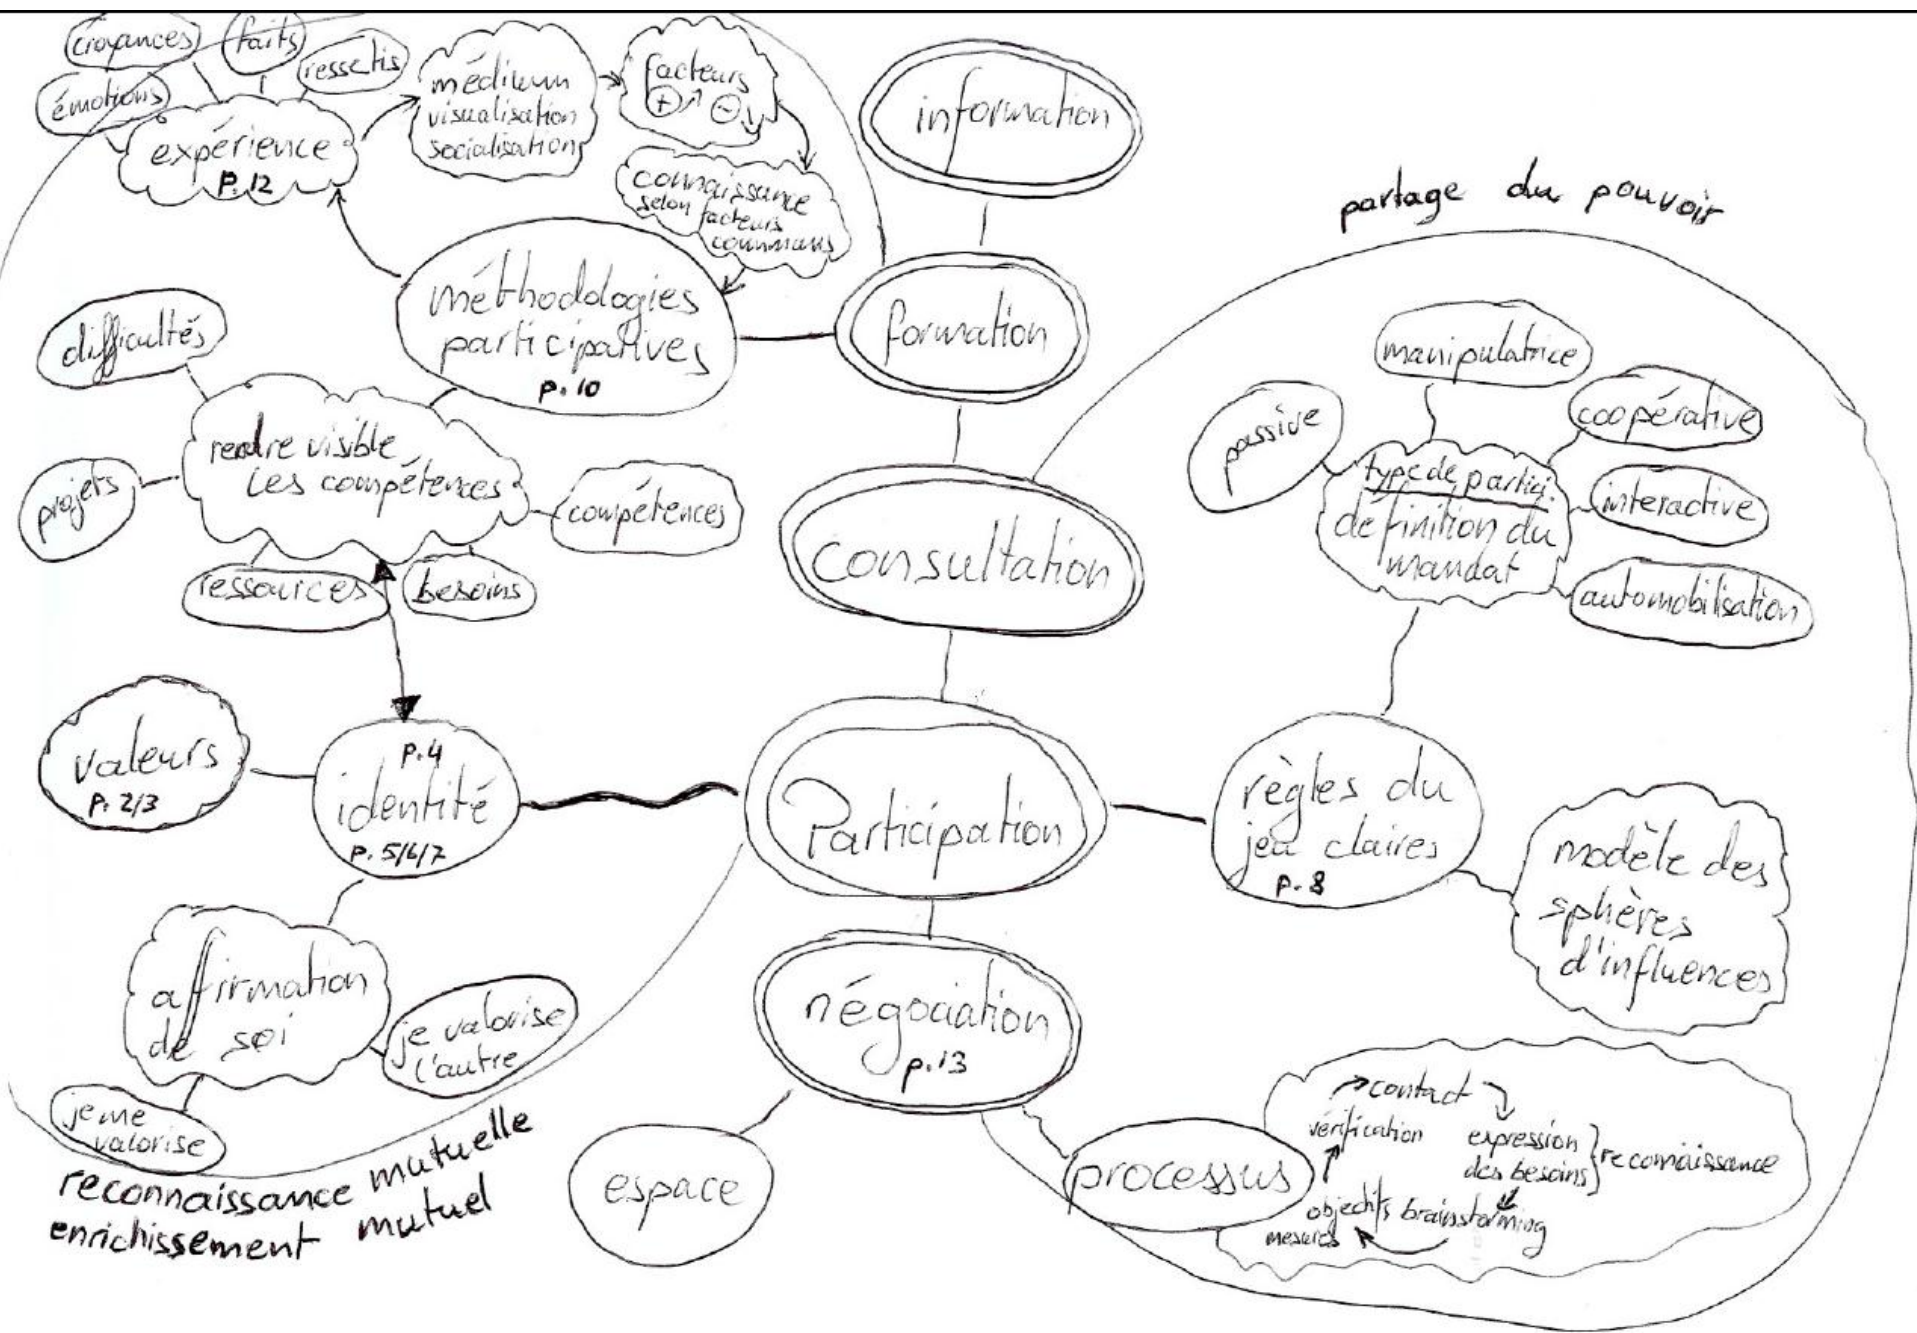 croyances
faits
ressetis
émotions
expérience
p. 12
médium
visualisation
socialisation
facteurs
+ -
connaissance
selon facteurs
communs
information
partage du pouvoir
méthodologies
participatives
p. 10
formation
difficultés
rendre visible
les compétences
projets
compétences
ressources
besoins
consultation
manipulatrice
passive
coopérative
type de partici.
définition du
mandat
interactive
automobilisation
valeurs
p. 2/3
p. 4
identité
p. 5/6/7
Participation
règles du
jeu claires
p. 8
modèle des
sphères
d'influences
affirmation
de soi
je valorise
l'autre
je me
valorise
reconnaissance mutuelle
enrichissement mutuel
négociation
p. 13
espace
processus
contact
vérification
expression
des besoins } reconnaissance
objectifs brainstorming
mesures